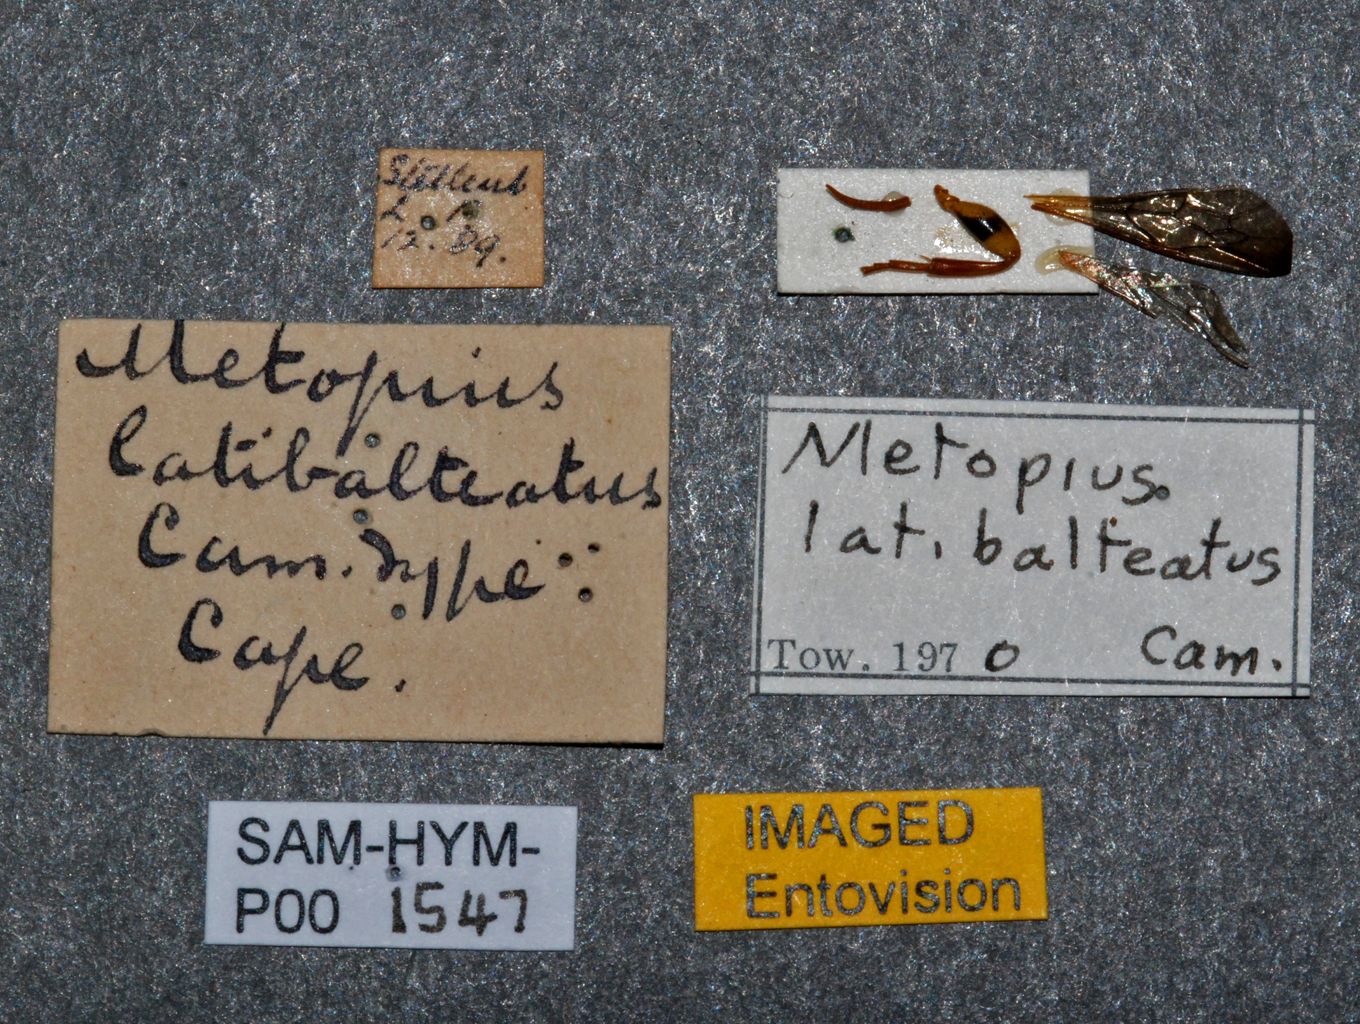 Stellenb
12. 89.
Metopius
latibalteatus
Cam. Type
Cape.
Metopius
lat. balteatus
Tow. 1970 Cam.
SAM-HYM-
P00 1547
IMAGED
Entovision